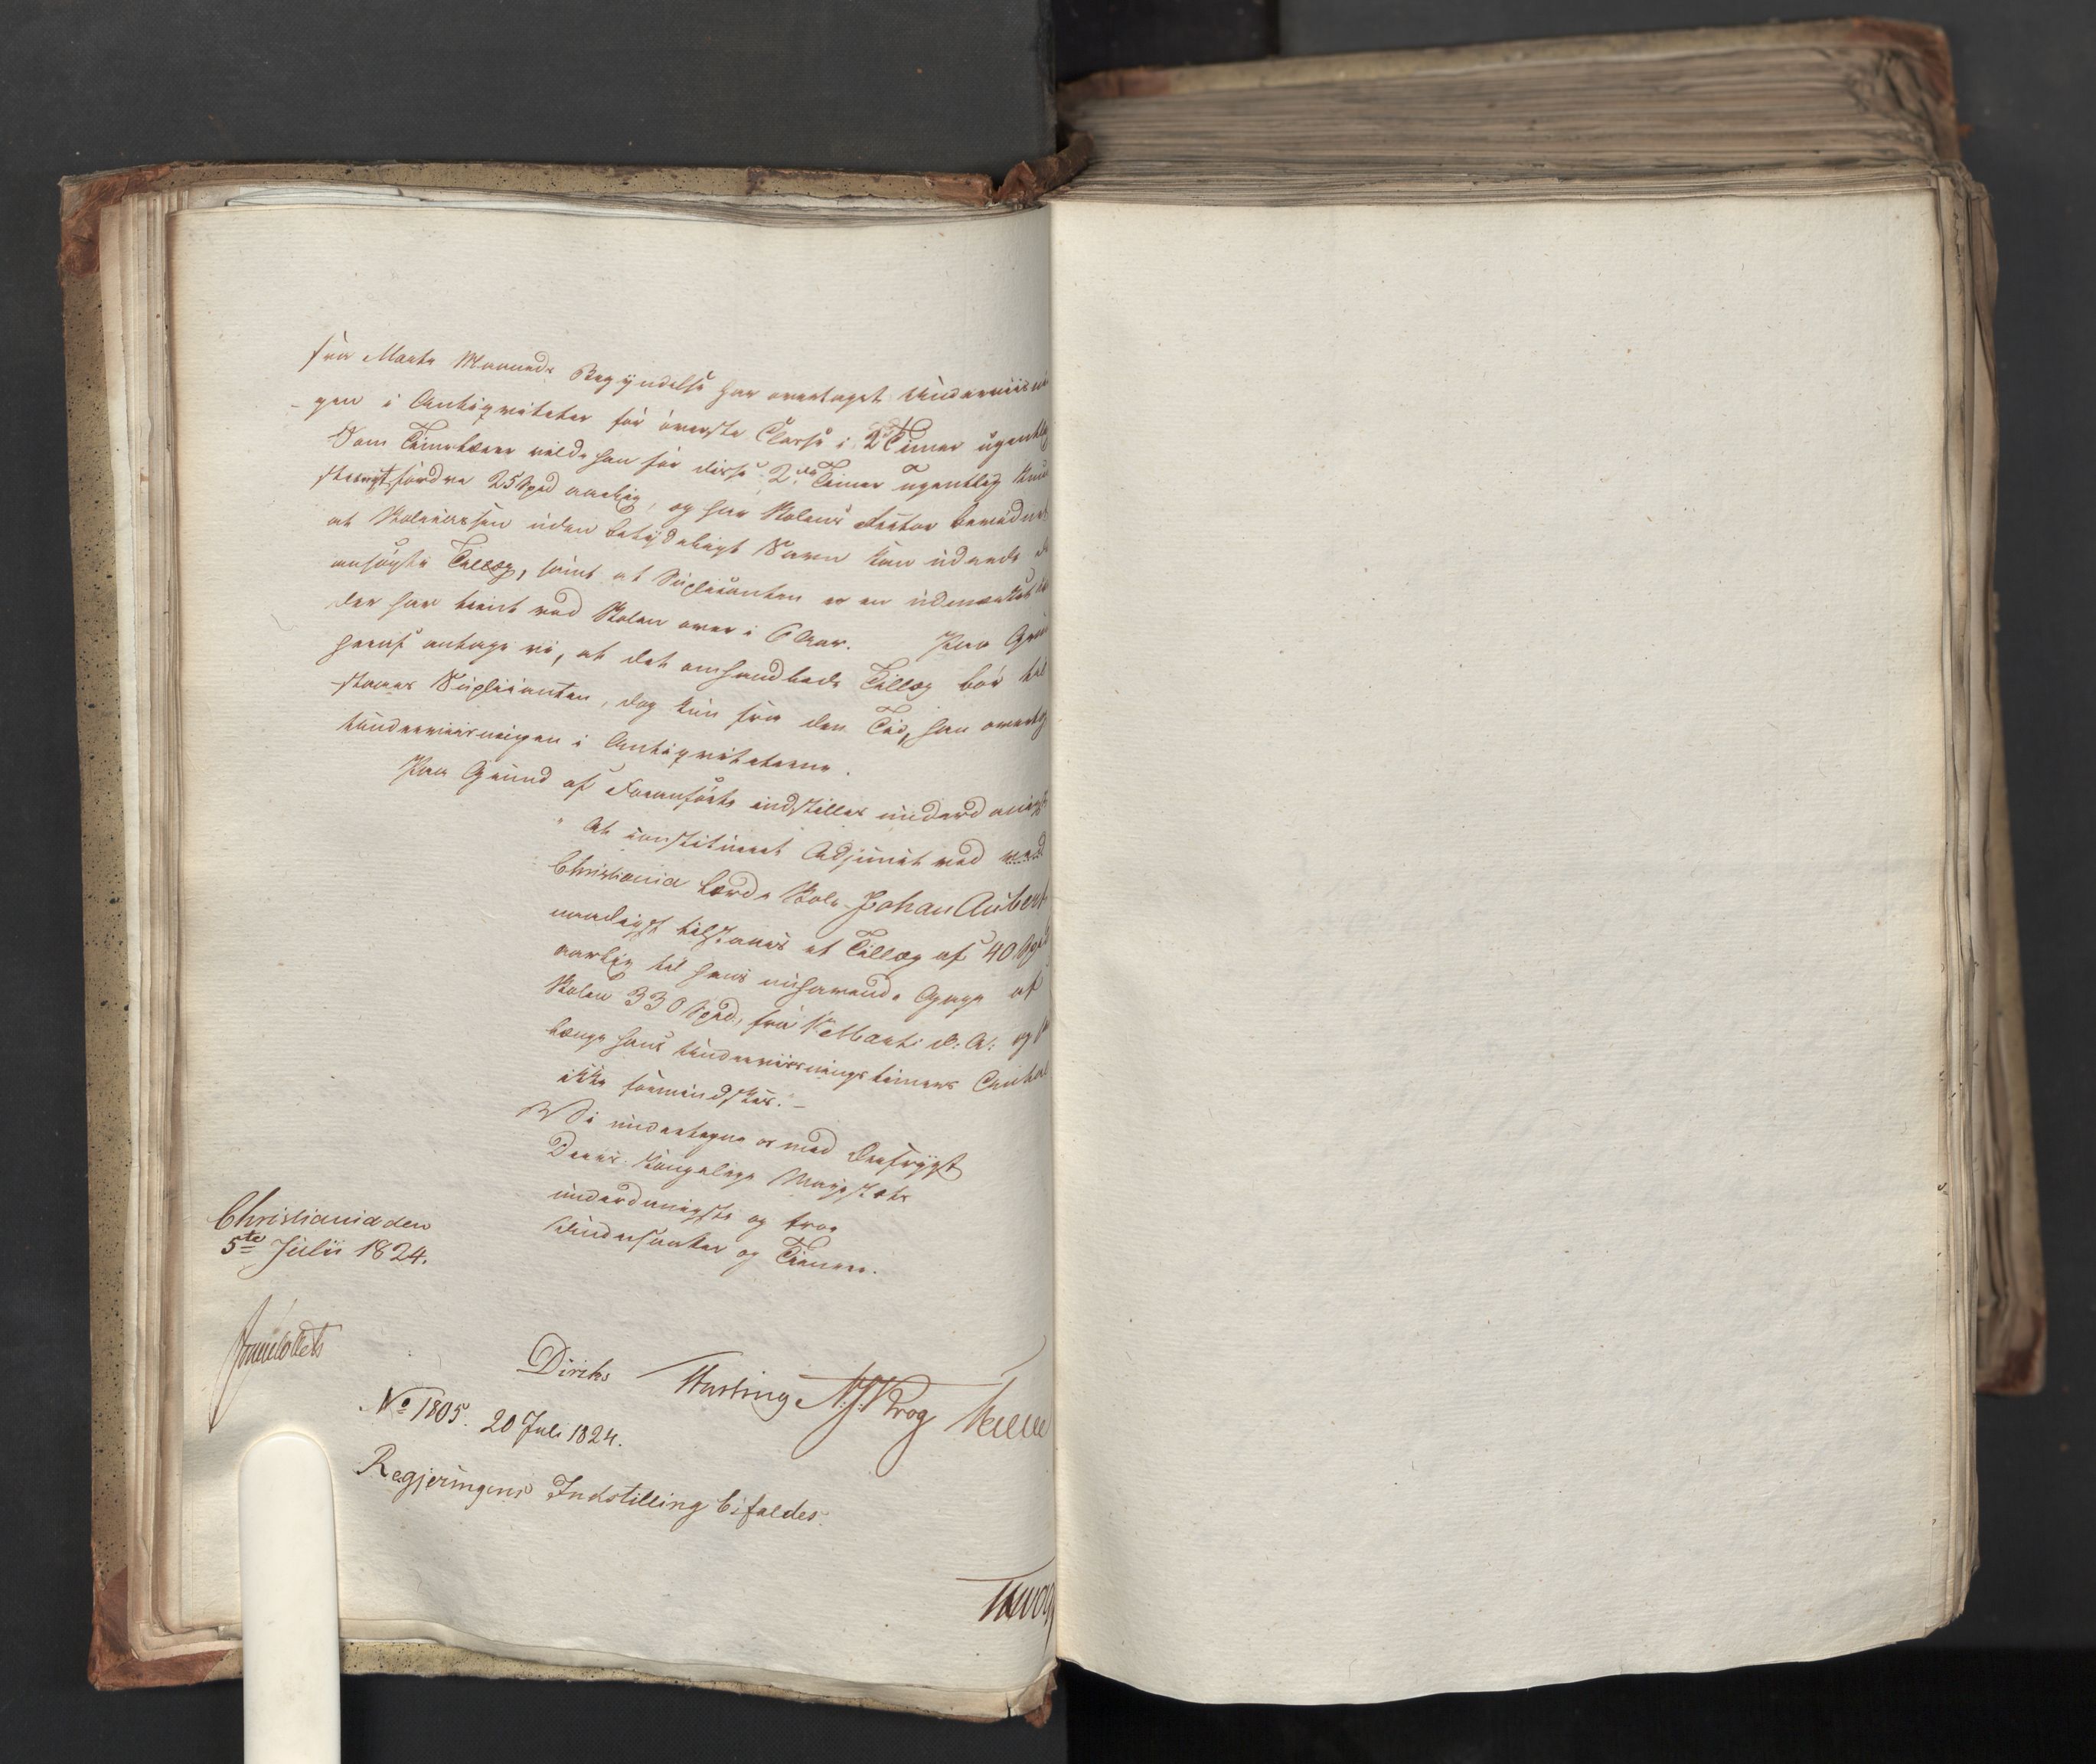 fra Marts Maaneds Begyndelse har overtaget Underviisnin
-gen i Antiqviteter for øverste Classe i 2de Timer ugentlig
Som Timelærer vilde han for disse 2de Timer ugentlig
fordre 25 Spd aarlig, og har Skolens Rector bemærket
at Skolecassen uden betydeligt Savn kan udrede
ansøgte Tillæg, samt at Supplicanten er en udmærket
der har tient ved Skolen over i 6 Aar. Paa Grund
heraf antage vi, at det omhandlede Tillæg bør til
-staaes Supplicanten, dog kun fra den Tid, han overtog
Underviisningen i Antiqviteterne.
Paa Grund af Foranførte indstilles underdanigst
" At constitueret Adjunct ved ved
Christiania lærde Skole Johan Aubert
naadigst tilstaaes et Tillæg af 40 Spd
aarlig til hans nuhavende Gage af
Skolen 330 Spd, fra 1 Marts d: A: og saa
længe hans Underviisningstimers Antal
ikke formindskes." –
Vi undertegne os med Ærefrygt
Deres Kongelige Majestæts
underdanigste og troe
Undersaatter og Tienere.
Christiania den
5te Julii 1824.
Sommerfeldt
Diriks
N. J. Krog
No 1805. 20 Juli 1824.
Regjeringens Indstilling bifaldes.